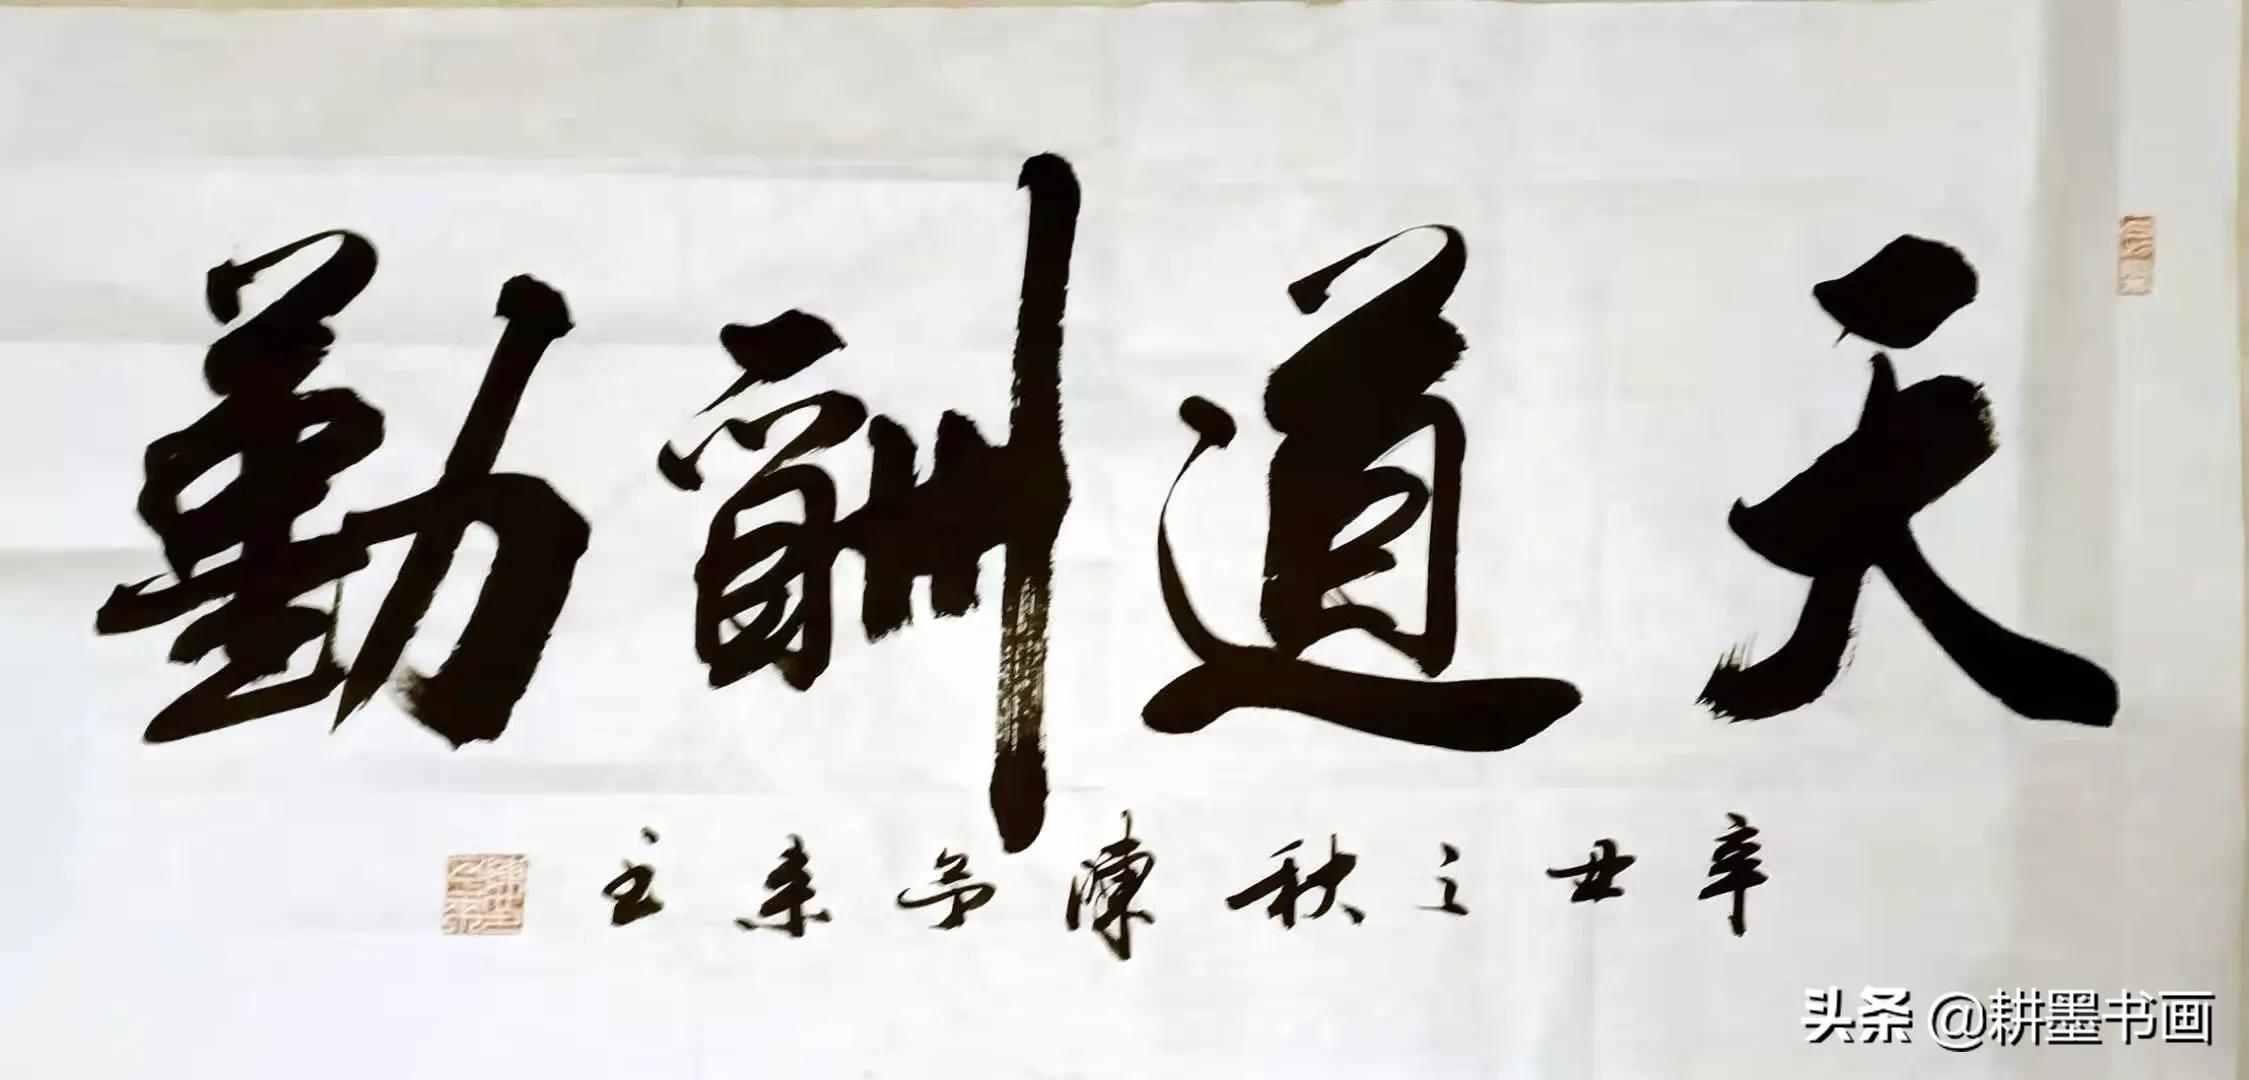 天道酬勤
辛丑之秋陳
头条 @耕墨书画